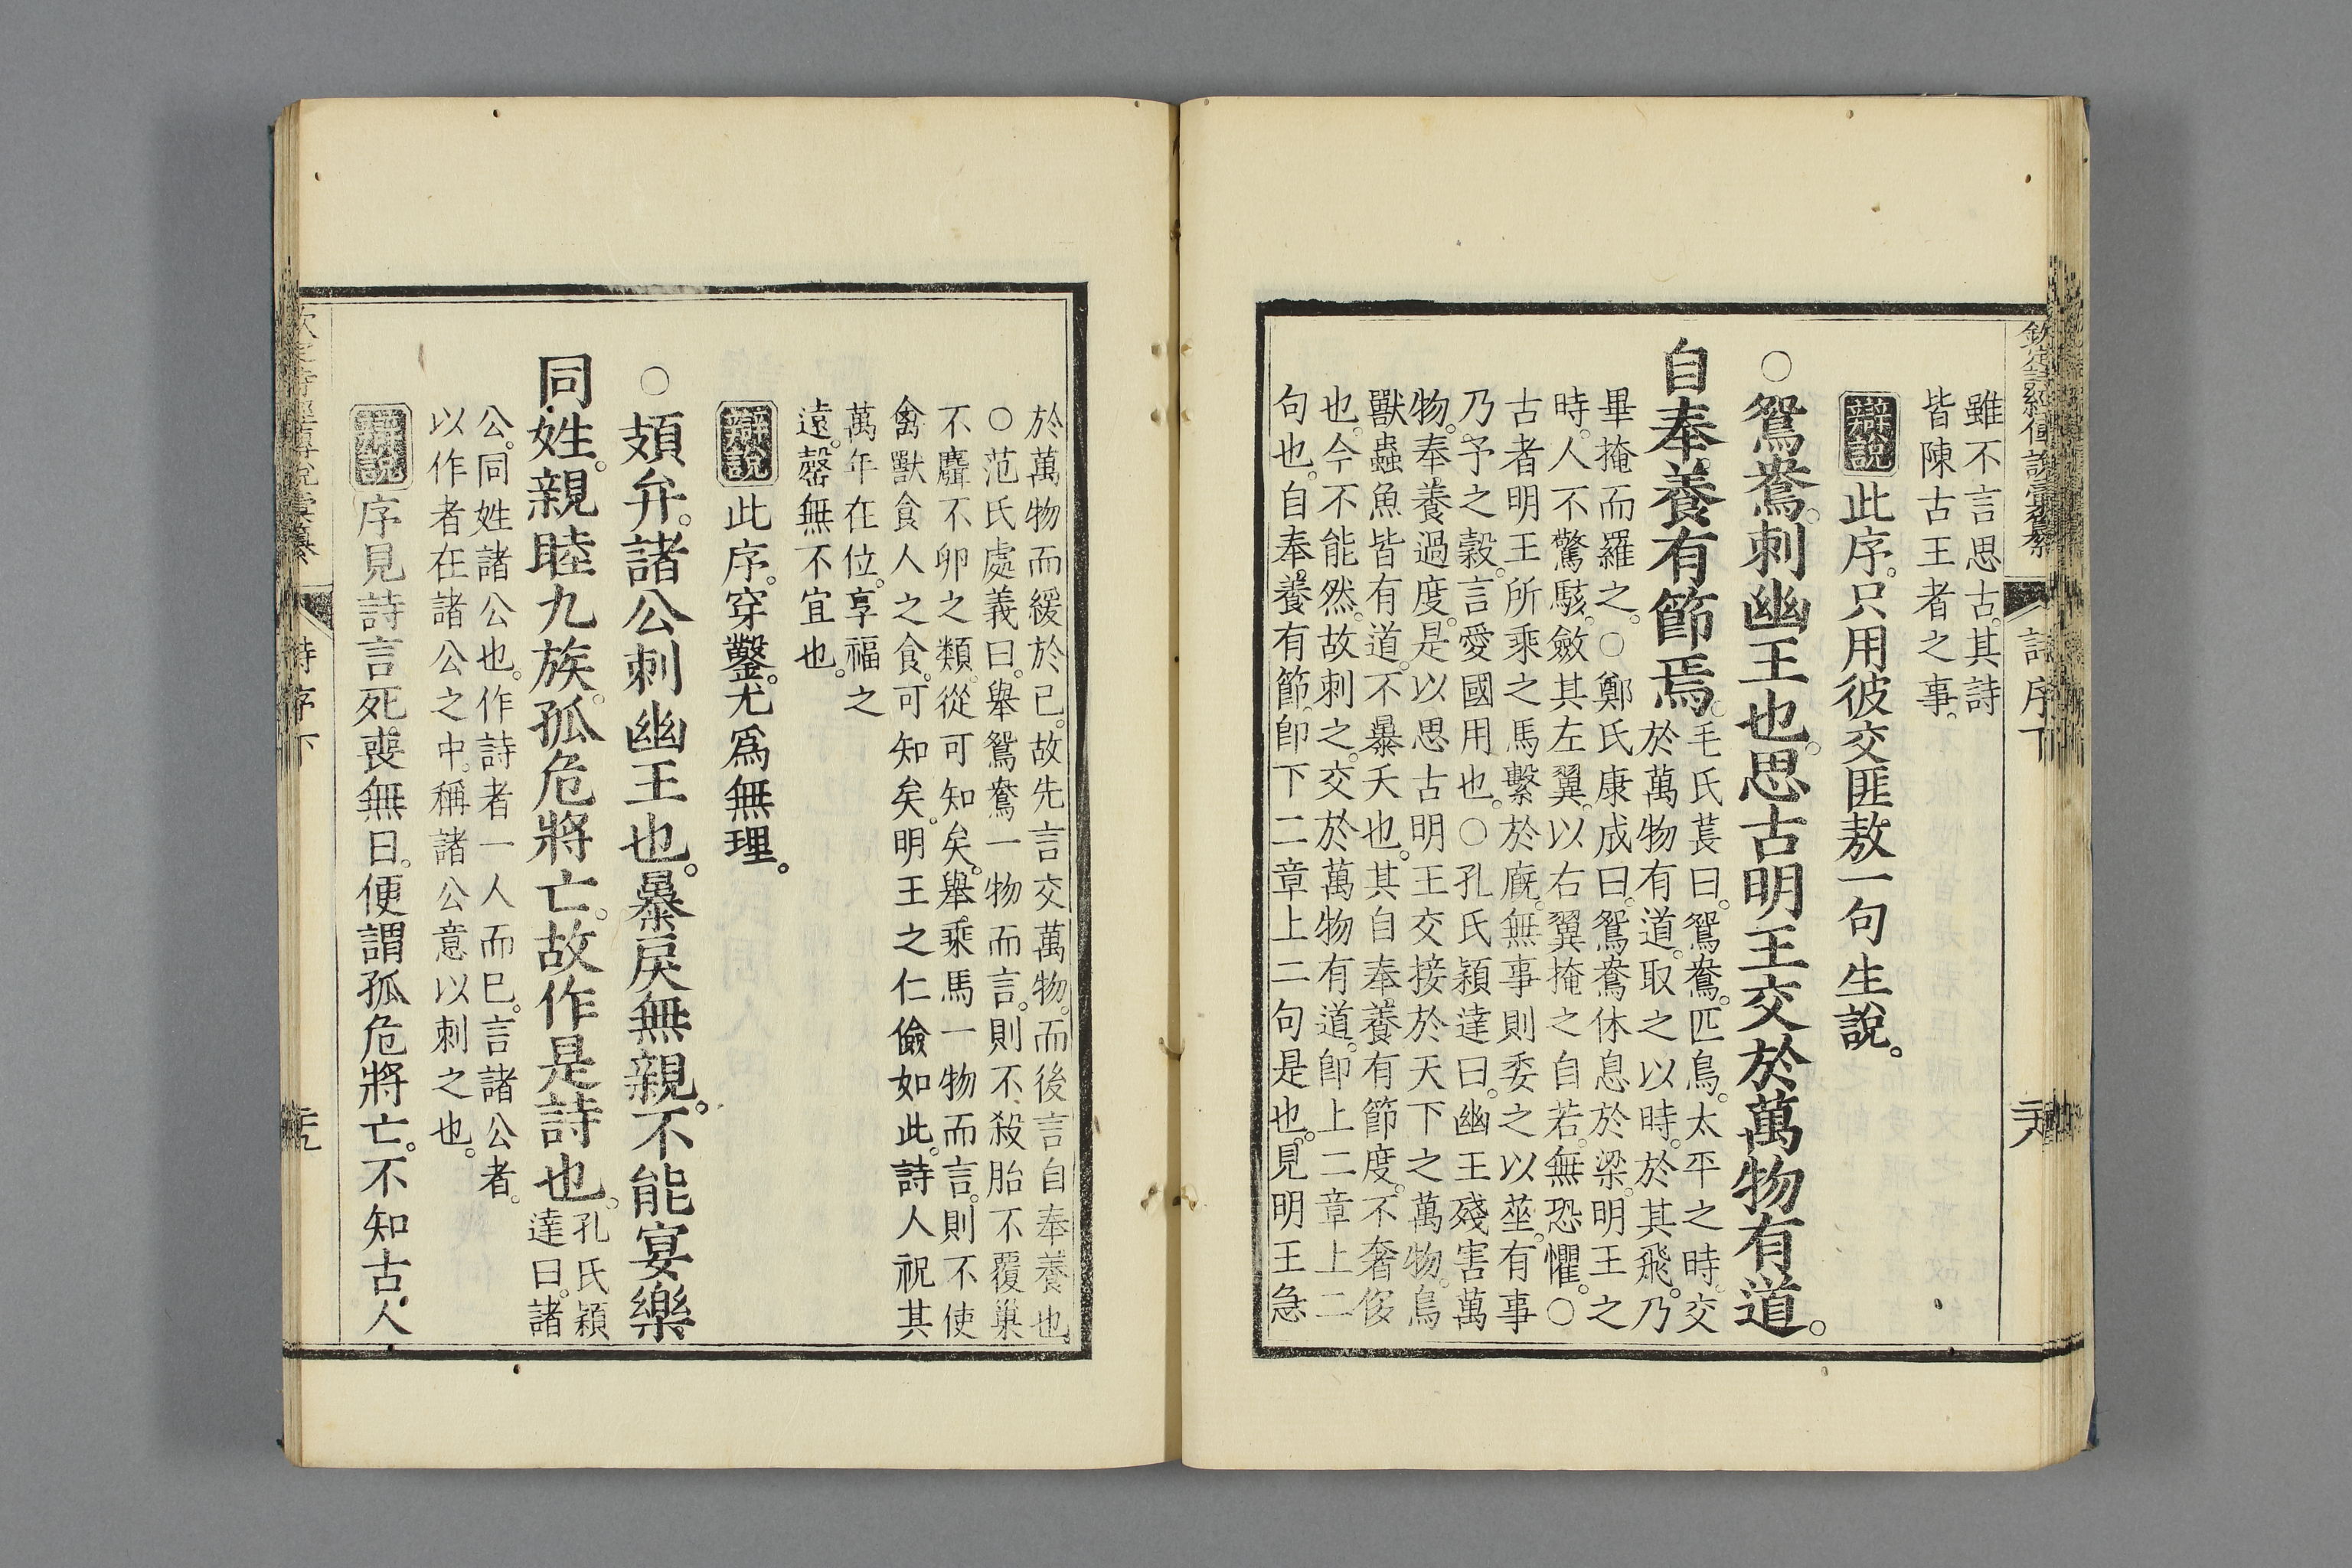 欽定詩經傳說彙纂 詩序下
雖不言思古。其詩
皆陳古王者之事。
辯說 此序。只用彼交匪敖一句生說。
○鴛鴦。刺幽王也。思古明王交於萬物有道。
自奉養有節焉。毛氏萇曰。鴛鴦。匹鳥。太平之時。交
於萬物有道。取之以時。於其飛。乃
畢掩而羅之。○鄭氏康成曰。鴛鴦休息於梁。明王之
時。人不驚駭。斂其左翼。以右翼掩之自若。無恐懼。○
古者明王所乘之馬繫於廐。無事則委之以莝。有事
乃予之穀。言愛國用也。○孔氏穎達曰。幽王殘害萬
物。奉養過度。是以思古明王交接於天下之萬物。鳥
獸蟲魚皆有道。不暴夭也。其自奉養有節度。不奢侈
也。今不能然。故刺之。交於萬物有道。卽上二章上二
句也。自奉養有節。卽下二章上二句是也。見明王急
於萬物而緩於已。故先言交萬物。而後言自奉養也。
○范氏處義曰。舉鴛鴦一物而言。則不殺胎不覆巢
不麛不卵之類。從可知矣。舉乘馬一物而言。則不使
禽獸食人之食。可知矣。明王之仁儉如此。詩人祝其
萬年在位。享福之
遠。罄無不宜也。
辯說 此序。穿鑿。尤爲無理。
○頍弁。諸公刺幽王也。暴戾無親。不能宴樂
同姓。親睦九族。孤危將亡。故作是詩也。孔氏穎
達曰。諸
公。同姓諸公也。作詩者一人而已。言諸公者。
以作者在諸公之中。稱諸公意以刺之也。
辯說 序見詩言死喪無日。便謂孤危將亡。不知古人
欽定詩經傳說彙纂 詩序下